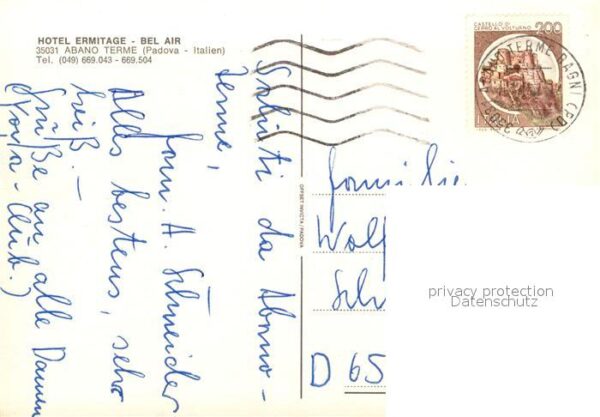 HOTEL ERMITAGE - BEL AIR
35031 ABANO TERME (Padova - Italien)
Tel. (049) 669.043 - 669.504
CASTELLO DI
CERRO AL VOLTURNO
200
ABANO TERME BAGNI (PD)
Saluti da Abano-
Terme,
Fam. A. Schneider
Alles bestens, sehr
heiß. —
Grüße an alle Damen
Club.)
OFFSET INVICTA / PADOVA
Familie
Wolf
Sch
D 65
privacy protection
Datenschutz